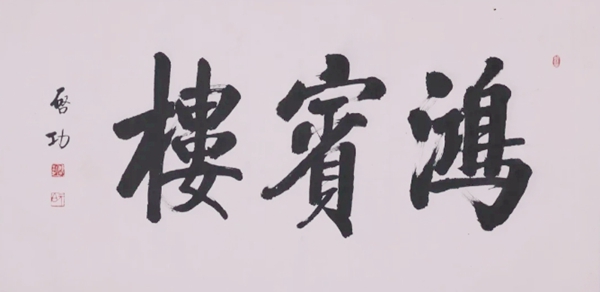 鴻賓樓
啓功